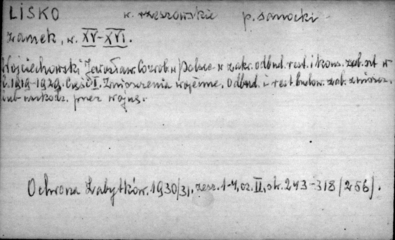 LISKO w. rzeszowskie p. sanocki
zamek, w. XV-XVI.
Wojciechowski Jarosław. Co zrob. w Polsce w zakr. odbud. rest. i kons. zab. szt. w
l. 1919-1929. Część I. Zniszczenia wojenne. Odbud. i rest. budow. zab. zniszcz.
lub uszkodz. przez wojnę.
Ochrona Zabytków. 1930/31, zesz. 1-4, cz. II, str. 243-318 /256/.